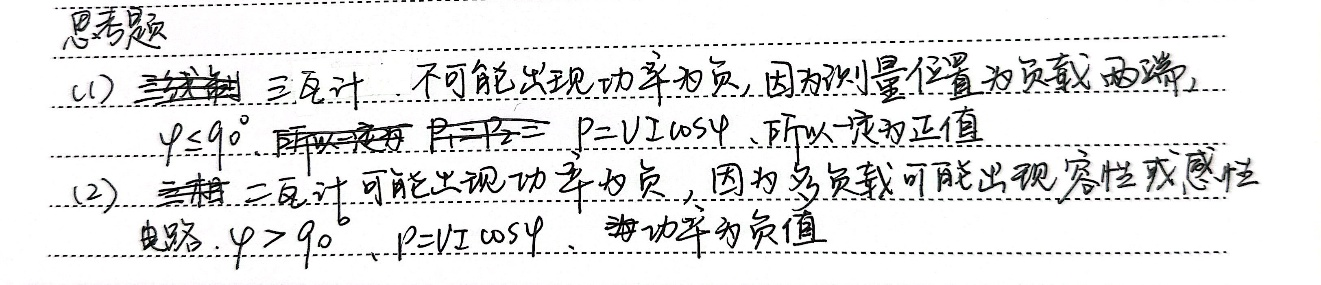 思考题
(1) 三瓦计. 不可能出现功率为负,因为测量位置为负载两端,
φ≤90°. P=UIcosφ、所以一定为正值
(2) 二瓦计可能出现功率为负,因为多负载可能出现容性或感性
电路. φ>90°、P=UIcosφ、功率为负值